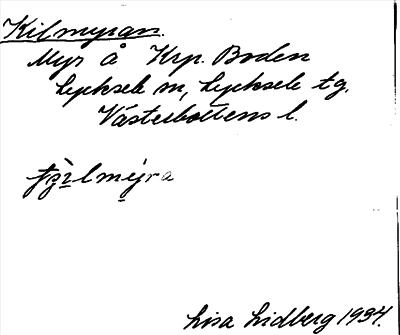 Kilmyran.
Myr å Krp. Boden
Lycksele m, Lycksele tg.
Västerbottens l.
Lisa Lidberg 1934.